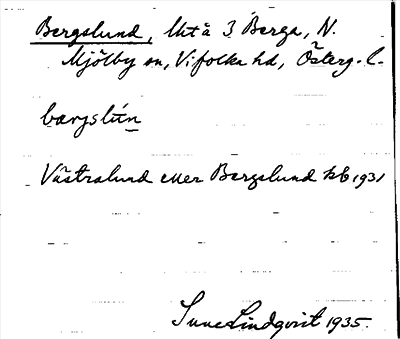 Bergslund, lht å 3 Berga, N.
Mjölby sn, Vifolka hd, Österg. l.
bærjslún
Västralund eller Bergslund kb 1931
Sune Lindqvist 1935.